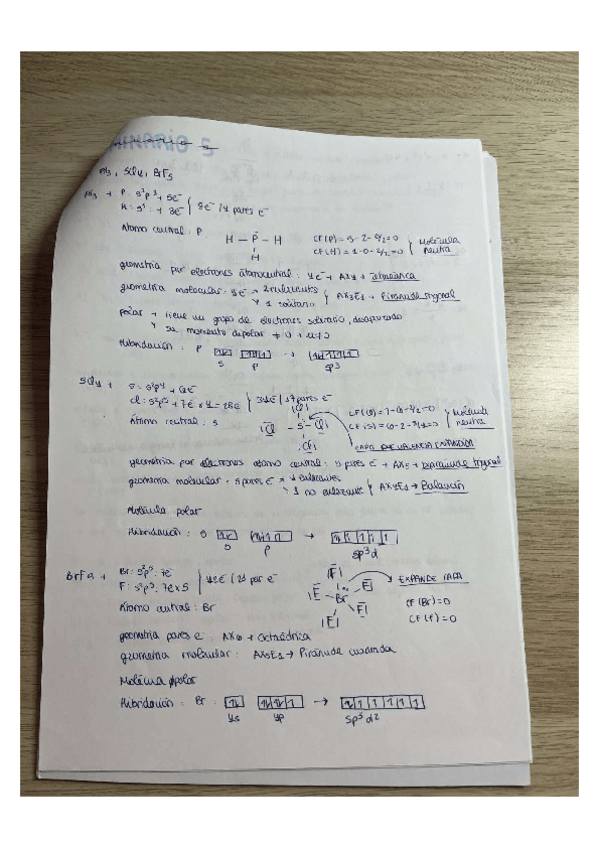 PH₃, SCl₄, BrF₅
PH₃ → P: s²p³ → 5e⁻
H: s¹: → 3e⁻ } 8e⁻ / 4 pares e⁻
Átomo central: P.
H — P — H
H
CF(P) = 5-2-6/2 = 0
CF(H) = 1-0-2/2 = 0 } Molécula neutra
geometría por electrones átomo central: 4e⁻ → AX4 → tetraédrica
geometría molecular: 4e⁻ → 3 enlazantes
↘ 1 solitario } AX3E1 → Pirámide trigonal
Polar → tiene un grupo de electrones solitario, desapareado
↘ su momento dipolar ≠ 0 → μ≠0
Hibridación: P
s p → sp³
SCl₄ → S: s²p⁴ → 6e⁻
Cl: s²p⁵ → 7e⁻ x 4 = 28e⁻ } 34e⁻ / 17 pares e⁻
Átomo central: S
|Cl — S — Cl|
CF(Cl) = 7-6-2/2 = 0
CF(S) = 6-2-8/2 = 0 } Molécula neutra
CAPA DE VALENCIA EXPANDIDA
geometría por electrones átomo central: 5 pares e⁻ → AX5 → bipirámide trigonal
geometría molecular: 5 pares e⁻ → 4 enlazantes
↘ 1 no enlazante } AX4E1 → Balancín
Molécula polar
Hibridación: S
s p → sp³d
BrF₅ → Br: s²p⁵: 7e⁻
F: s²p⁵: 7e⁻ x 5 } 42e⁻ / 21 par e⁻
Átomo central: Br
|F — Br F|
EXPANDE CAPA
CF(Br) = 0
CF(F) = 0
geometría pares e⁻: AX6 → Octaédrica
geometría molecular: AX5E1 → Pirámide cuadrada
Molécula polar
Hibridación: Br:
4s 4p → sp³d²